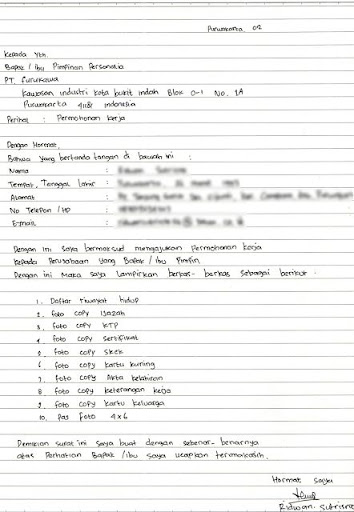 Purwakarta, 02
Kepada Yth.
Bapak / Ibu Pimpinan Personalia
PT Furukawa
Kawasan industri kota bukit indah Blok D-1 No. 1A
Purwakarta 41181 indonesia
Perihal : Permohonan kerja
Dengan Hormat,
Bahwa yang bertanda tangan di bawah ini :
Nama :
Tempat, Tanggal lahir :
Alamat :
No Telepon / HP :
E-mail :
Dengan ini saya bermaksud mengajukan Permohonan kerja
kepada Perusahaan yang Bapak / Ibu Pimpin
Dengan ini Maka saya lampirkan berkas- berkas sebagai berikut :
1. Daftar riwayat hidup
2. foto copy ijazah
3. foto copy KTP
4. foto copy sertifikat
5. foto copy skck
6. foto copy kartu kuning
7. foto copy Akta kelahiran
8. foto copy keterangan kerja
9. foto copy kartu keluarga
10. Pas foto 4x6
Demikian surat ini saya buat dengan sebenar- benarnya
atas Perhatian Bapak / ibu saya ucapkan terimakasih.
Hormat saya
Ridwan. Sutrisna